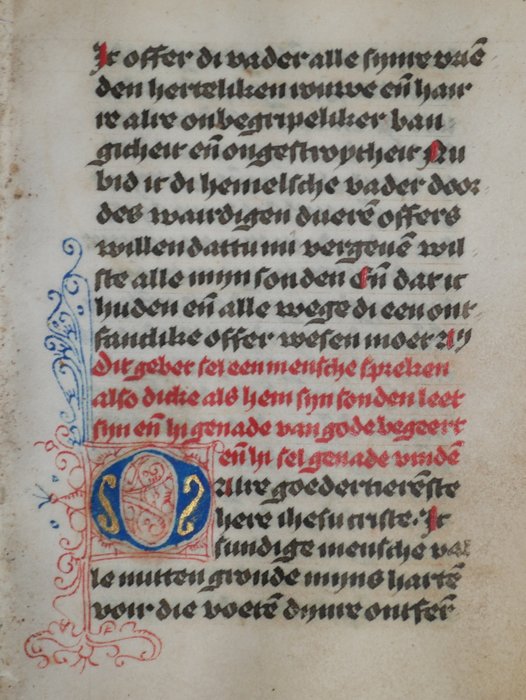 Ic offer di vader alle synre vriē
den herteliken rouwe eñ hair
re alre onbegripeliker ban
gicheit eñ ongestroytheit Nu
bid ic di hemelsche vader door
des waerdigen duerē offers
willen dattu mi vergeuē wil
ste alle mijn sonden Eñ dat ic
huden eñ alle wege di een ont
fanclike offer wesen moet
Dit gebet sel een mensche spreken
also dicke als hem sijn sonden leet
sijn eñ hi genade van gode begeert
eñ hi sel genade vindē
O Alre goedertierēste
here ihesu criste. Ic
sundige mensche val
le mitten gronde mijns hartē
voir die voetē dijnre ontfer